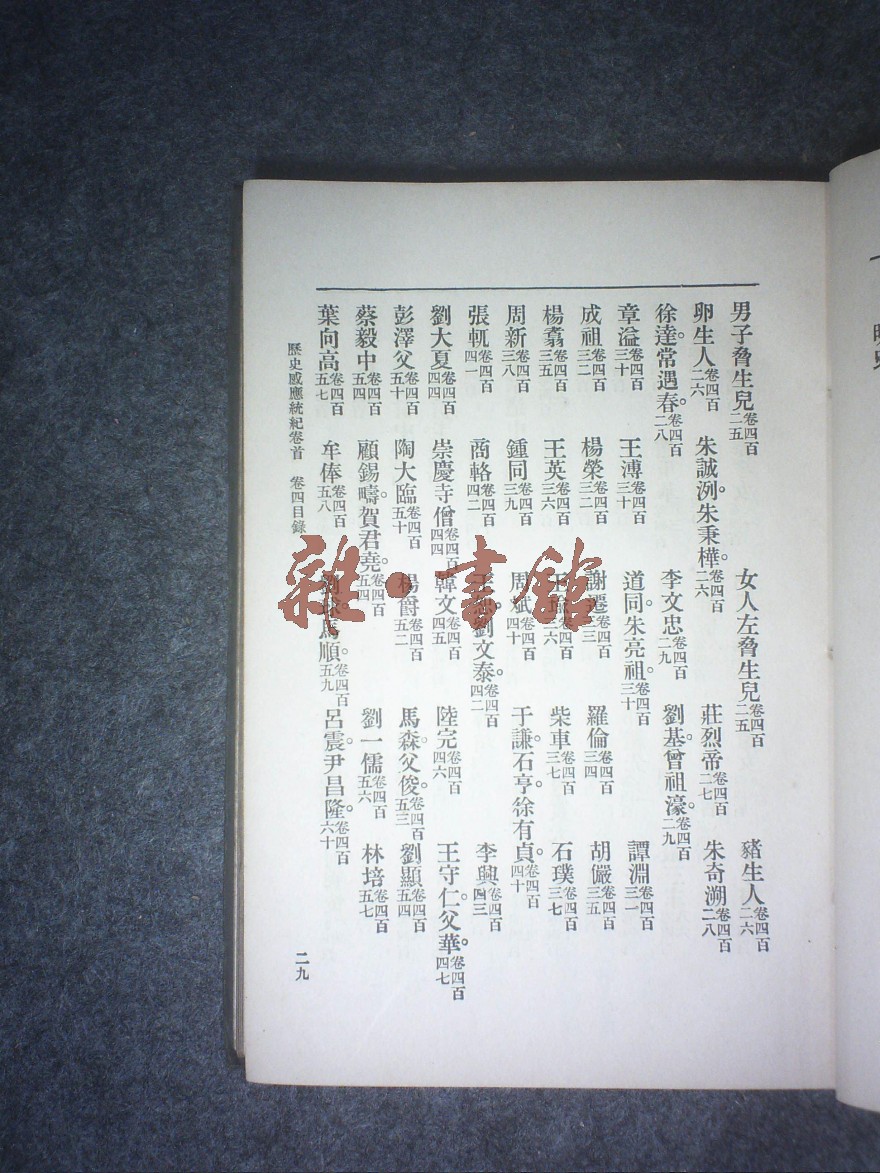 男子脅生兒卷四百二五 女人左脅生兒卷四百二五 豬生人卷四百二六
卵生人卷四百二六 朱誠洌。朱秉樺。卷四百二六 莊烈帝卷四百二七 朱奇溯卷四百二八
徐達。常遇春。卷四百二八 李文忠卷四百二九 劉基曾祖濠。卷四百二九
章溢卷四百三十 王溥卷四百三十 道同。朱亮祖。卷四百三十 譚淵卷四百三一
成祖卷四百三二 楊榮卷四百三二 謝遷卷四百三三 羅倫卷四百三四 胡儼卷四百三五
楊翥卷四百三五 王英卷四百三六 王卷四百三六 柴車卷四百三七 石璞卷四百三七
周新卷四百三八 鍾同卷四百三九 周斌卷四百四十 于謙。石亨。徐有貞。卷四百四十
張軏卷四百四一 商輅卷四百四二 王 劉文泰。卷四百四二 李興卷四百四三
劉大夏卷四百四四 崇慶寺僧卷四百四四 韓文卷四百四五 陸完卷四百四六 王守仁。父華。卷四百四七
彭澤父卷四百五十 陶大臨卷四百五十 楊爵卷四百五二 馬森。父俊。卷四百五三 劉顯卷四百五四
蔡毅中卷四百五四 顧錫疇。賀君堯。卷四百五四 劉一儒卷四百五六 林培卷四百五七
葉向高卷四百五七 牟俸卷四百五八 馬順。卷四百五九 呂震。尹昌隆。卷四百六十
歷史感應統紀卷首 卷四目錄 二九
雜·書館